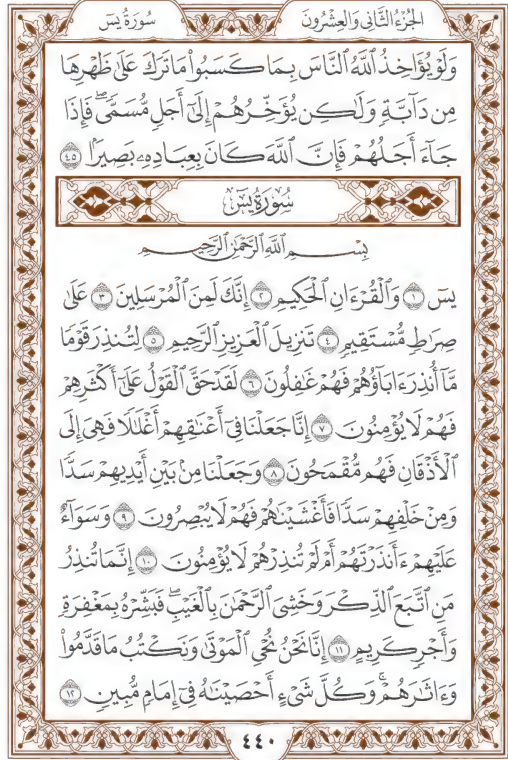 الجزء الثاني والعشرون
سورة يس
وَلَوْ يُؤَاخِذُ ٱللَّهُ ٱلنَّاسَ بِمَا كَسَبُوا۟ مَا تَرَكَ عَلَىٰ ظَهْرِهَا
مِن دَآبَّةٍ وَلَـٰكِن يُؤَخِّرُهُمْ إِلَىٰٓ أَجَلٍ مُّسَمًّى ۖ فَإِذَا
جَآءَ أَجَلُهُمْ فَإِنَّ ٱللَّهَ كَانَ بِعِبَادِهِۦ بَصِيرًۢا ٤٥
سُورَةُ يسٓ
بِسْمِ ٱللَّهِ ٱلرَّحْمَـٰنِ ٱلرَّحِيمِ
يسٓ ١ وَٱلْقُرْءَانِ ٱلْحَكِيمِ ٢ إِنَّكَ لَمِنَ ٱلْمُرْسَلِينَ ٣ عَلَىٰ
صِرَٰطٍ مُّسْتَقِيمٍ ٤ تَنزِيلَ ٱلْعَزِيزِ ٱلرَّحِيمِ ٥ لِتُنذِرَ قَوْمًا
مَّآ أُنذِرَ ءَابَآؤُهُمْ فَهُمْ غَـٰفِلُونَ ٦ لَقَدْ حَقَّ ٱلْقَوْلُ عَلَىٰٓ أَكْثَرِهِمْ
فَهُمْ لَا يُؤْمِنُونَ ٧ إِنَّا جَعَلْنَا فِىٓ أَعْنَـٰقِهِمْ أَغْلَـٰلًا فَهِىَ إِلَى
ٱلْأَذْقَانِ فَهُم مُّقْمَحُونَ ٨ وَجَعَلْنَا مِنۢ بَيْنِ أَيْدِيهِمْ سَدًّا
وَمِنْ خَلْفِهِمْ سَدًّا فَأَغْشَيْنَـٰهُمْ فَهُمْ لَا يُبْصِرُونَ ٩ وَسَوَآءٌ
عَلَيْهِمْ ءَأَنذَرْتَهُمْ أَمْ لَمْ تُنذِرْهُمْ لَا يُؤْمِنُونَ ١٠ إِنَّمَا تُنذِرُ
مَنِ ٱتَّبَعَ ٱلذِّكْرَ وَخَشِىَ ٱلرَّحْمَـٰنَ بِٱلْغَيْبِ ۖ فَبَشِّرْهُ بِمَغْفِرَةٍ
وَأَجْرٍ كَرِيمٍ ١١ إِنَّا نَحْنُ نُحْىِ ٱلْمَوْتَىٰ وَنَكْتُبُ مَا قَدَّمُوا۟
وَءَاثَـٰرَهُمْ ۚ وَكُلَّ شَىْءٍ أَحْصَيْنَـٰهُ فِىٓ إِمَامٍ مُّبِينٍ ١٢
٤٤٠